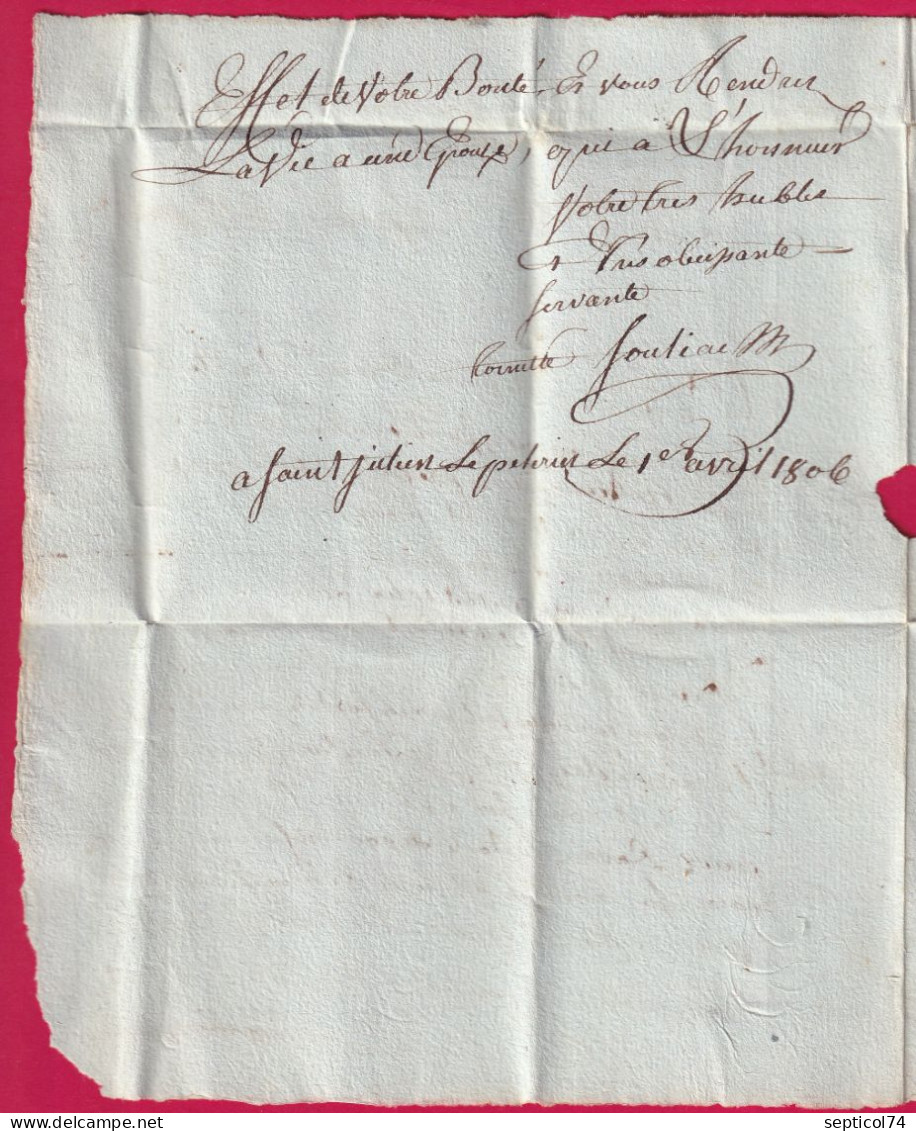 Effet de Votre Bonté Et vous Rendrez
La Vie a une Epouze, qui a L'honneur
Votre tres humble
& Tres obeissante
servante
Soulier
a Saint julien Le pelerin Le 1er avril 1806
septicol74